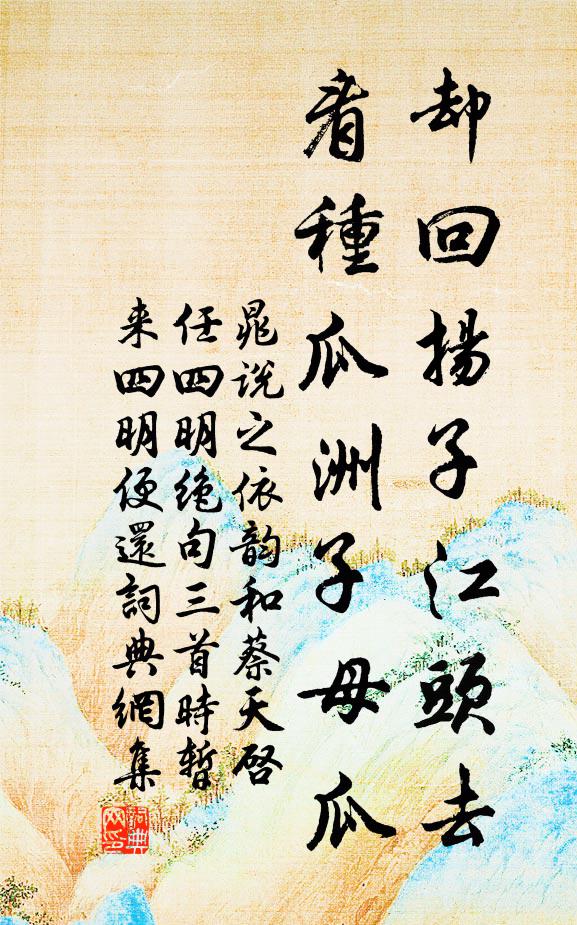 却回揚子江頭去
看種瓜洲子母瓜
晁說之依韵和蔡天啓
任四明絶句三首時暫
来四明便還詞典網集
詞典
网印